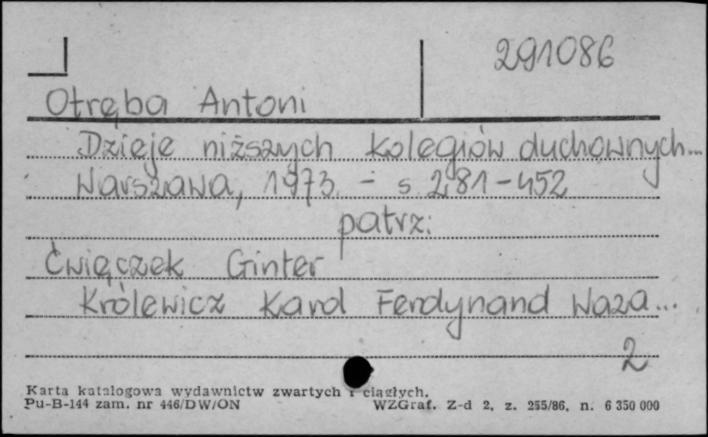 291086
Otręba Antoni
Dzieje niższych kolegiów duchownych...
Warszawa, 1973. - s. 281-452
patrz:
Ćwięczek Ginter
Królewicz Karol Ferdynand Waza...
2
Karta katalogowa wydawnictw zwartych i ciągłych.
Pu-B-144 zam. nr 446/DW/ON WZGraf. Z-d 2, z. 255/86, n. 6 350 000